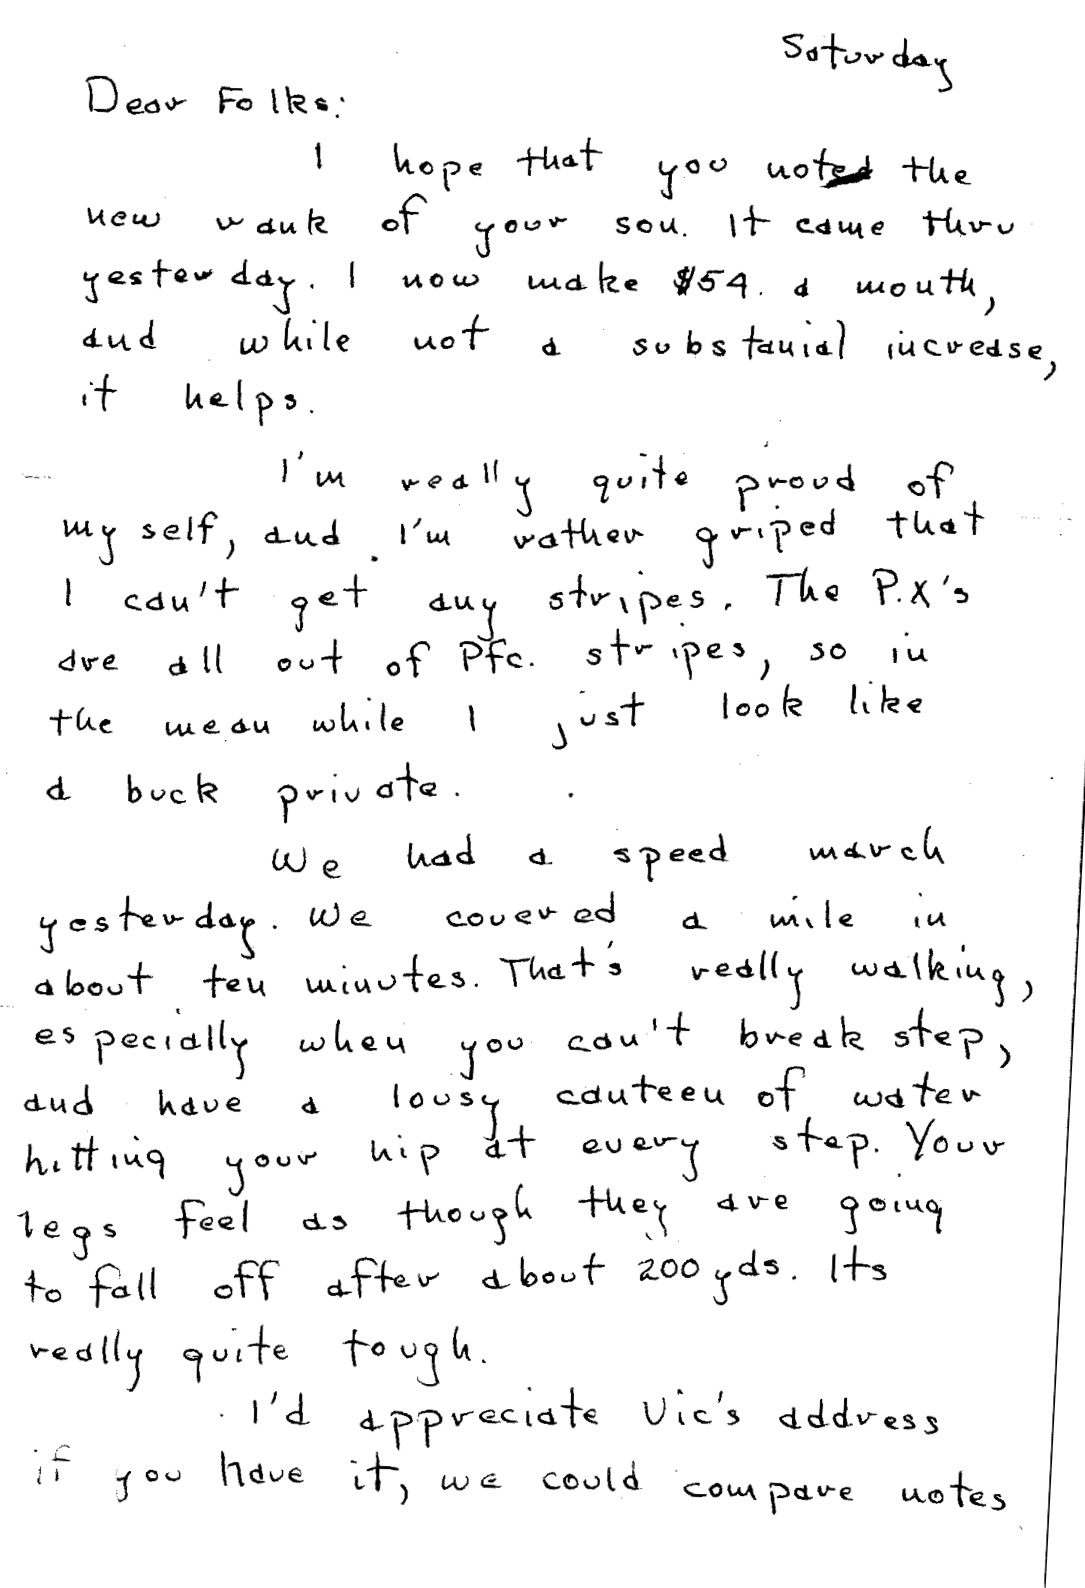 Saturday
Dear Folks:
I hope that you noted the
new rank of your son. It came thru
yesterday. I now make $54. a month,
and while not a substanial increase,
it helps.
I'm really quite proud of
my self, and I'm rather griped that
I can't get any stripes. The P.X's
are all out of Pfc. stripes, so in
the mean while I just look like
a buck private.
We had a speed march
yesterday. We covered a mile in
about ten minutes. That's really walking,
especially when you can't break step,
and have a lousy canteen of water
hitting your hip at every step. Your
legs feel as though they are going
to fall off after about 200 yds. Its
really quite tough.
I'd appreciate Vic's address
if you have it, we could compare notes